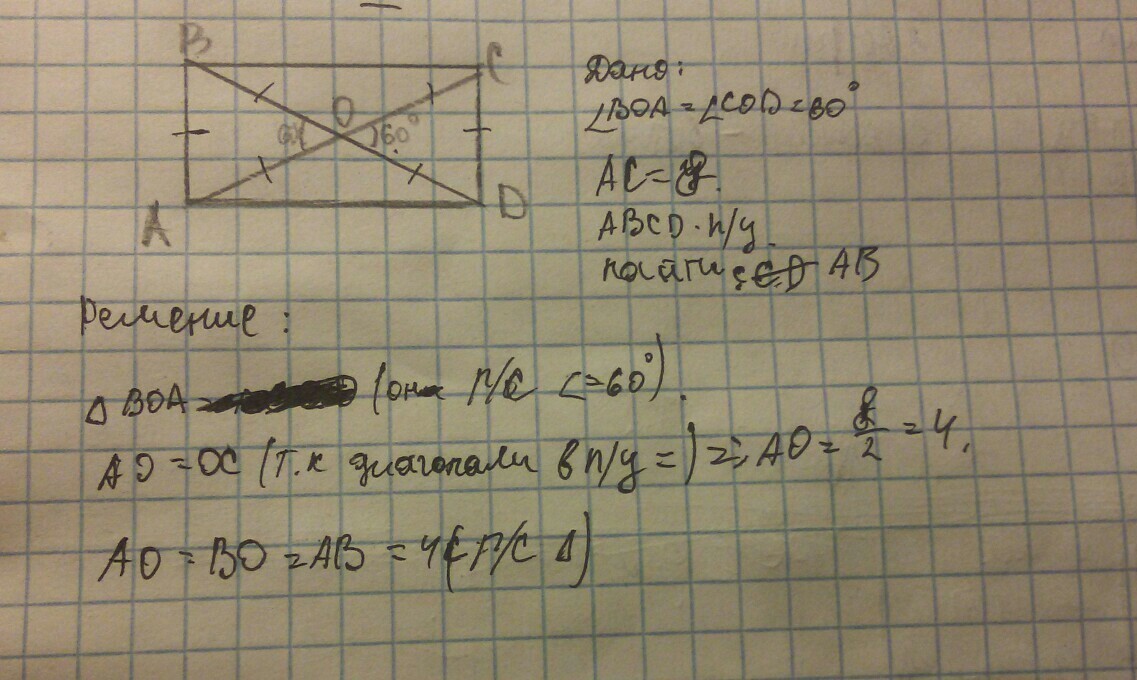 B
C
O
60°
A
D
Дано:
∠BOA = ∠COD = 60°
AC = 8.
ABCD - п/у.
Найти: AB
Решение:
Δ BOA (она р/с ∠=60°).
AO = OC (т.к диагонали в п/у =) => AO = 8/2 = 4.
AO = BO = AB = 4 (р/с Δ)